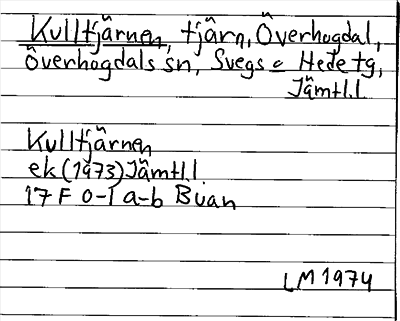 Kulltjärnen, tjärn, Överhogdal,
Överhogdals sn, Svegs o Hede tg,
Jämtl.l
Kulltjärnen
ek (1973) Jämtl.l.
17 F 0-1 a-b Buan
LM 1974